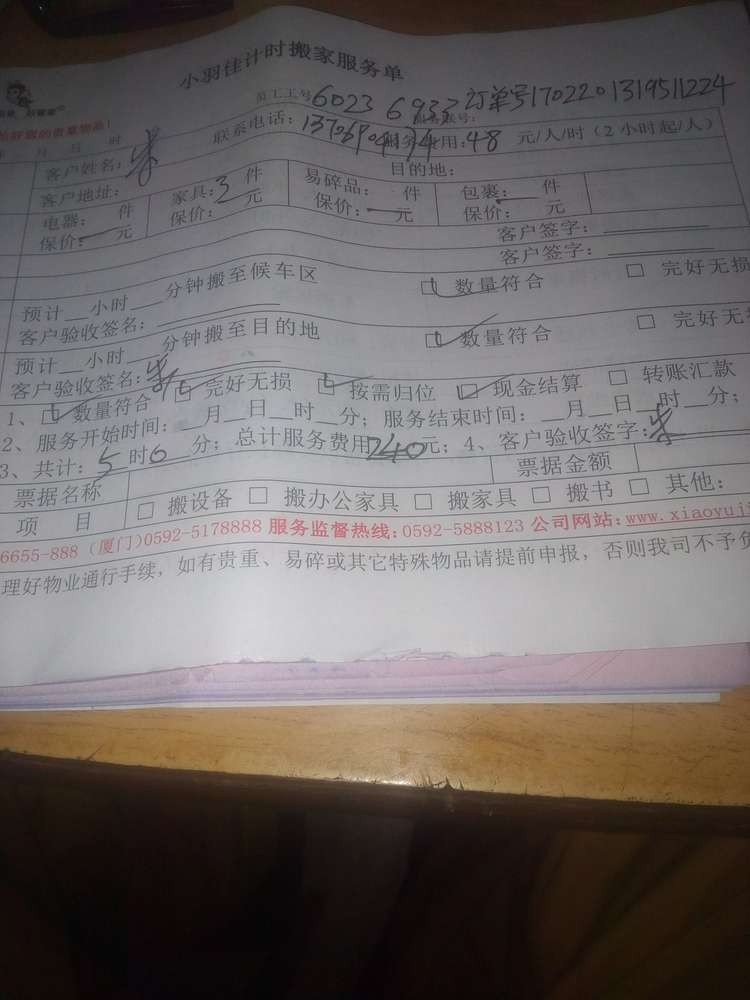 小羽佳计时搬家服务单
员工工号6023 6933 订单号1702201319511224
好您的贵重物品!
月 日 时
联系电话: 用:48 元/人/时(2小时起/人)
客户姓名:朱
客户地址: 目的地:
电器: 件 家具:3 件 易碎品: 件 包裹: 件
保价:一元 保价: 元 保价:一元 保价: 元
客户签字:
客户签字:
预计__小时__分钟搬至候车区 ☑ 数量符合 □ 完好无损
客户验收签名:
预计__小时__分钟搬至目的地 ☑ 数量符合 □ 完好无
客户验收签名:朱
1、☑ 数量符合 ☑ 完好无损 ☑ 按需归位 ☑ 现金结算 □ 转账汇款
2、服务开始时间:__月__日__时__分; 服务结束时间:__月__日__时__分;
3、共计:5时0分; 总计服务费用240元; 4、客户验收签字:朱
票据名称 票据金额
项 目 □ 搬设备 □ 搬办公家具 □ 搬家具 □ 搬书 □ 其他:
6655-888 (厦门)0592-5178888 服务监督热线:0592-5888123 公司网站:www.xiaoyuji
理好物业通行手续,如有贵重、易碎或其它特殊物品请提前申报,否则我司不予